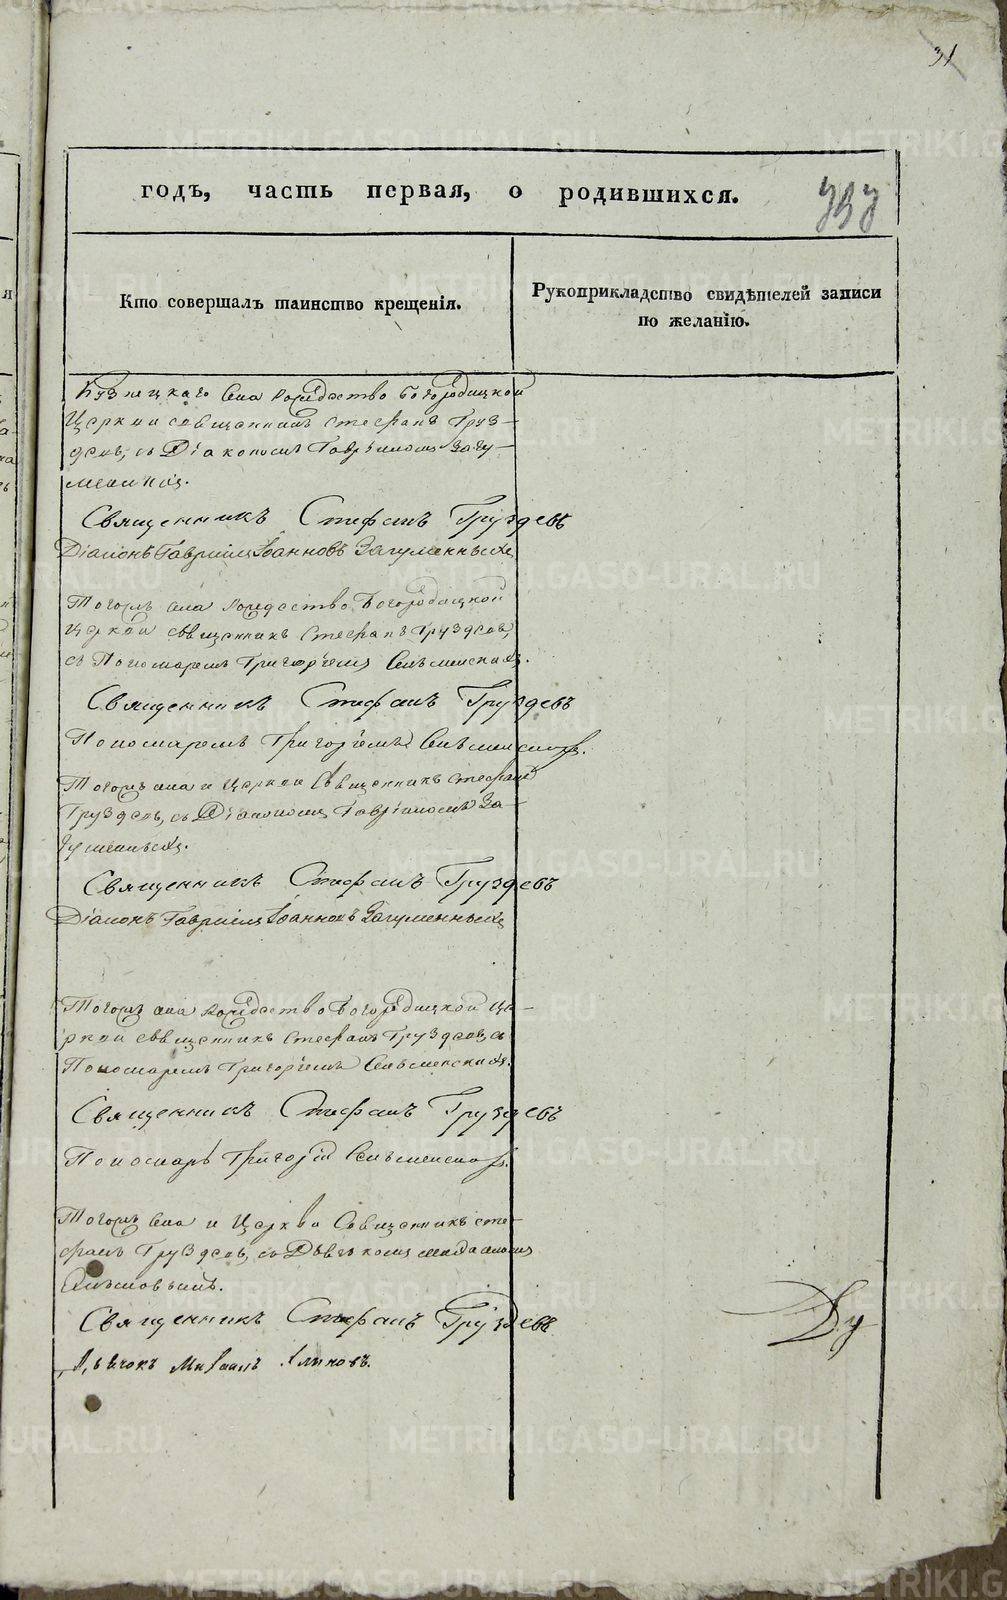 31
годъ, часть первая, о родившихся.
Кто совершалъ таинство крещенія.
Рукоприкладство свидѣтелей записи
по желанію.
села Рождество Богородицкой
Церкви священникъ Стефанъ Груз-
девъ, съ Діакономъ Гавріиломъ Загу-
Священникъ Стефанъ Груздевъ
Діаконъ Гавріилъ Іоанновъ Загуменныхъ
Тогожъ села Рождество Богородицкой
Церкви священникъ Стефанъ Груздевъ,
съ Пономаремъ Григоріемъ
Священникъ Стефанъ Груздевъ
Пономаремъ Григоріемъ
Тогожъ села и Церкви Священникъ Стефанъ
Груздевъ, съ Діакономъ Гавріиломъ За-
Священникъ Стефанъ Груздевъ
Діаконъ Гавріилъ Іоанновъ Загуменныхъ
Тогожъ села Рождество Богородицкой Це-
ркви священникъ Стефанъ Груздевъ, съ
Пономаремъ Григоріемъ
Священникъ Стефанъ Груздевъ
Пономарь Григорій
Тогожъ села и Церкви Священникъ Сте-
фанъ Груздевъ, съ
Священникъ Стефанъ Груздевъ
Дьячокъ Михаилъ
METRIKI.GASO-URAL.RU